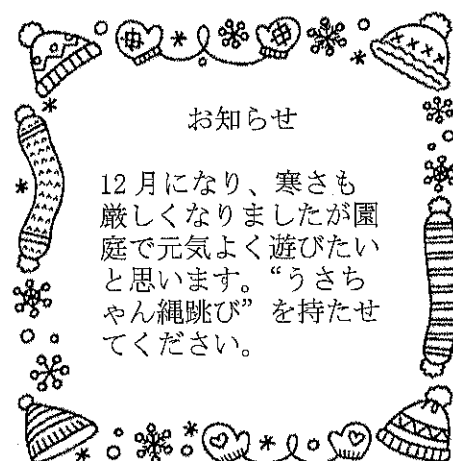 お知らせ
12月になり、寒さも
厳しくなりましたが園
庭で元気よく遊びたい
と思います。“うさち
ゃん縄跳び”を持たせ
てください。